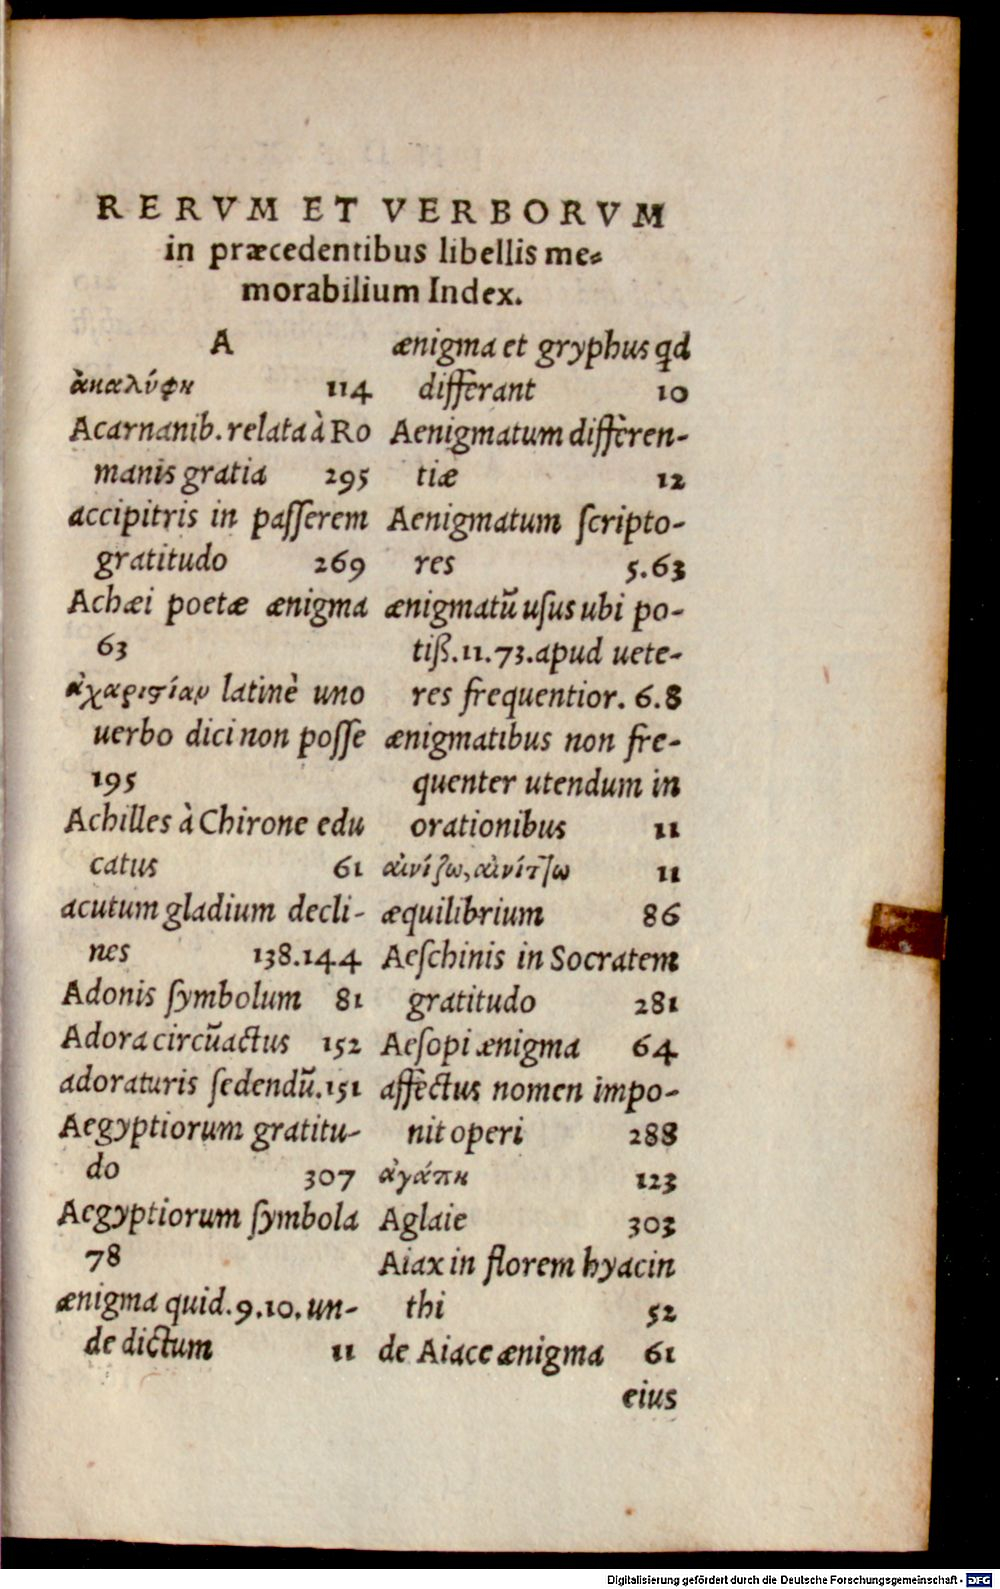 RERVM ET VERBORVM
in præcedentibus libellis me-
morabilium Index.
A
ἀκαλύφη 114
Acarnanib. relata à Ro
manis gratia 295
accipitris in paſſerem
gratitudo 269
Achæi poetæ ænigma
63
ἀχαριστίαν latinè uno
uerbo dici non poſſe
195
Achilles à Chirone edu
catus 61
acutum gladium decli-
nes 138.144
Adonis ſymbolum 81
Adora circũactus 152
adoraturis ſedendũ. 151
Aegyptiorum gratitu-
do 307
Aegyptiorum ſymbola
78
ænigma quid. 9.10. un-
de dictum 11
ænigma et gryphus qd
differant 10
Aenigmatum differen-
tiæ 12
Aenigmatum ſcripto-
res 5.63
ænigmatũ uſus ubi po-
tiß. 11.73. apud uete-
res frequentior. 6.8
ænigmatibus non fre-
quenter utendum in
orationibus 11
αἰνίζω, αἰνίτζω 11
æquilibrium 86
Aeſchinis in Socratem
gratitudo 281
Aeſopi ænigma 64
affectus nomen impo-
nit operi 288
ἀγάπη 123
Aglaie 303
Aiax in florem hyacin
thi 52
de Aiace ænigma 61
eius
Digitalisierung gefördert durch die Deutsche Forschungsgemeinschaft - DFG